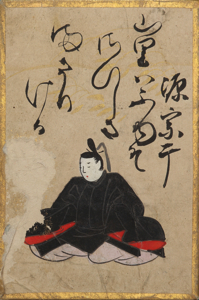 源宗于
山里ハふゆそ
さひしさ
まさりける